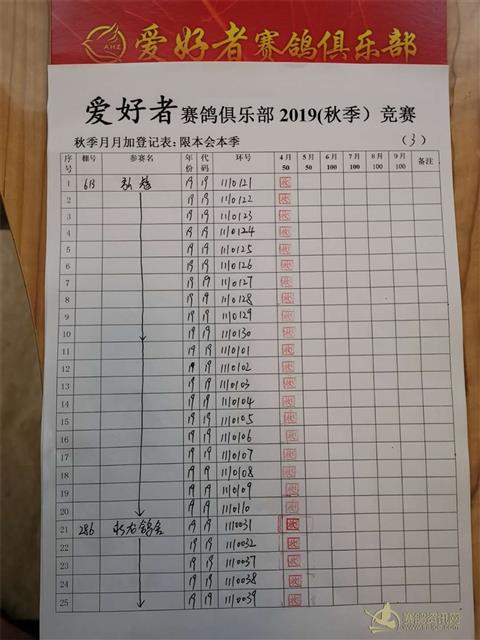 AHZ
爱好者赛鸽俱乐部
爱好者赛鸽俱乐部2019(秋季）竞赛
秋季月月加登记表：限本会本季 （3）
序号 棚号 参赛名 年份 代码 环号 4月50 5月50 6月100 7月100 8月100 9月100 备注
1 613 19 19 1110121
2 19 19 1110122
3 19 19 1110123
4 19 19 1110124
5 19 19 1110125
6 19 19 1110126
7 19 19 1110127
8 19 19 1110128
9 19 19 1110129
10 19 19 1110130
11 19 19 1110101
12 19 19 1110102
13 19 19 1110103
14 19 19 1110104
15 19 19 1110105
16 19 19 1110106
17 19 19 1110107
18 19 19 1110108
19 19 19 1110109
20 19 19 1110110
21 286 19 19 1110031
22 19 19 1110032
23 19 19 1110037
24 19 19 1110038
25 19 19 1110039
赛鸽资讯网